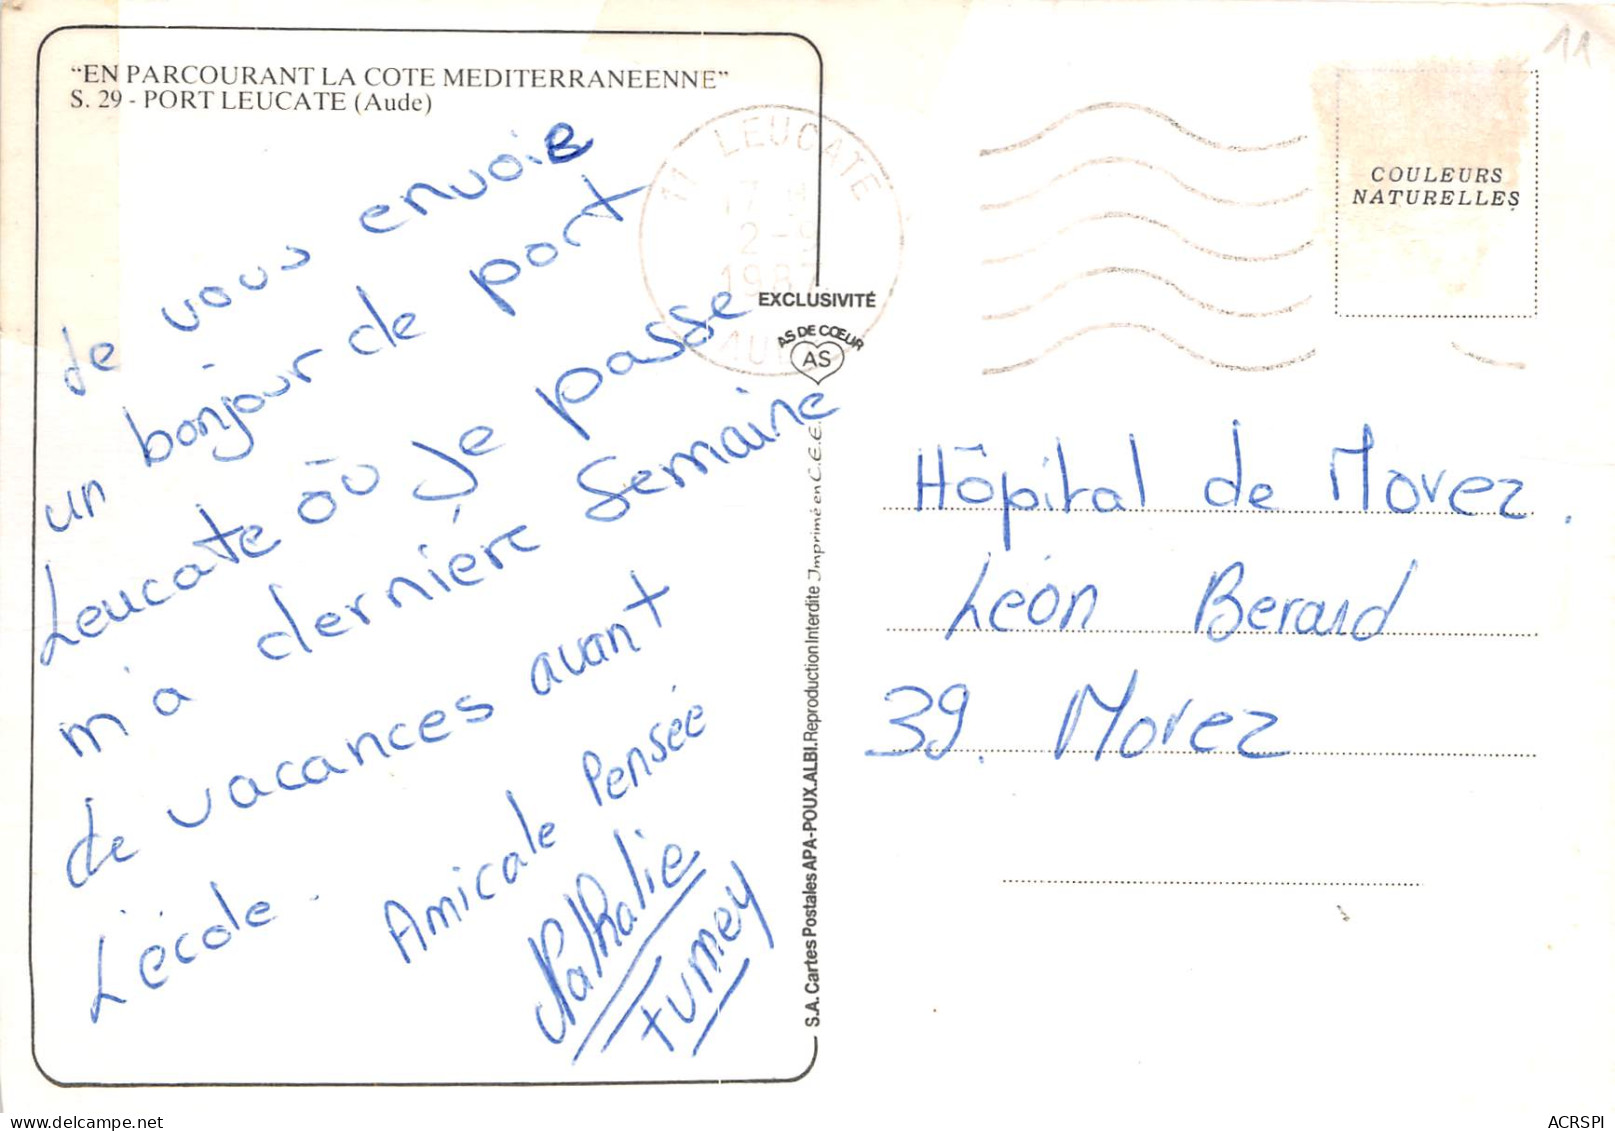 "EN PARCOURANT LA COTE MEDITERRANEENNE"
S. 29 - PORT LEUCATE (Aude)
Je vous envoie
un bonjour de port
Leucate où Je passe
m'a dernière semaine
de vacances avant
L'école.
Amicale Pensée
Nathalie
Fumey
11 LEUCATE
17 H
2-9
1987
AUDE
EXCLUSIVITÉ
AS DE CŒUR
AS
S.A. Cartes Postales APA-POUX.ALBI. Reproduction Interdite Imprimé en C.E.E.
11
COULEURS
NATURELLES
Hôpital de Morez.
Léon Berard
39. Morez
ACRSPI